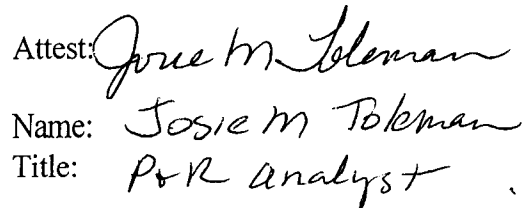 Attest: Josie M Tokman
Name: Josie M Tokman
Title: P&R Analyst